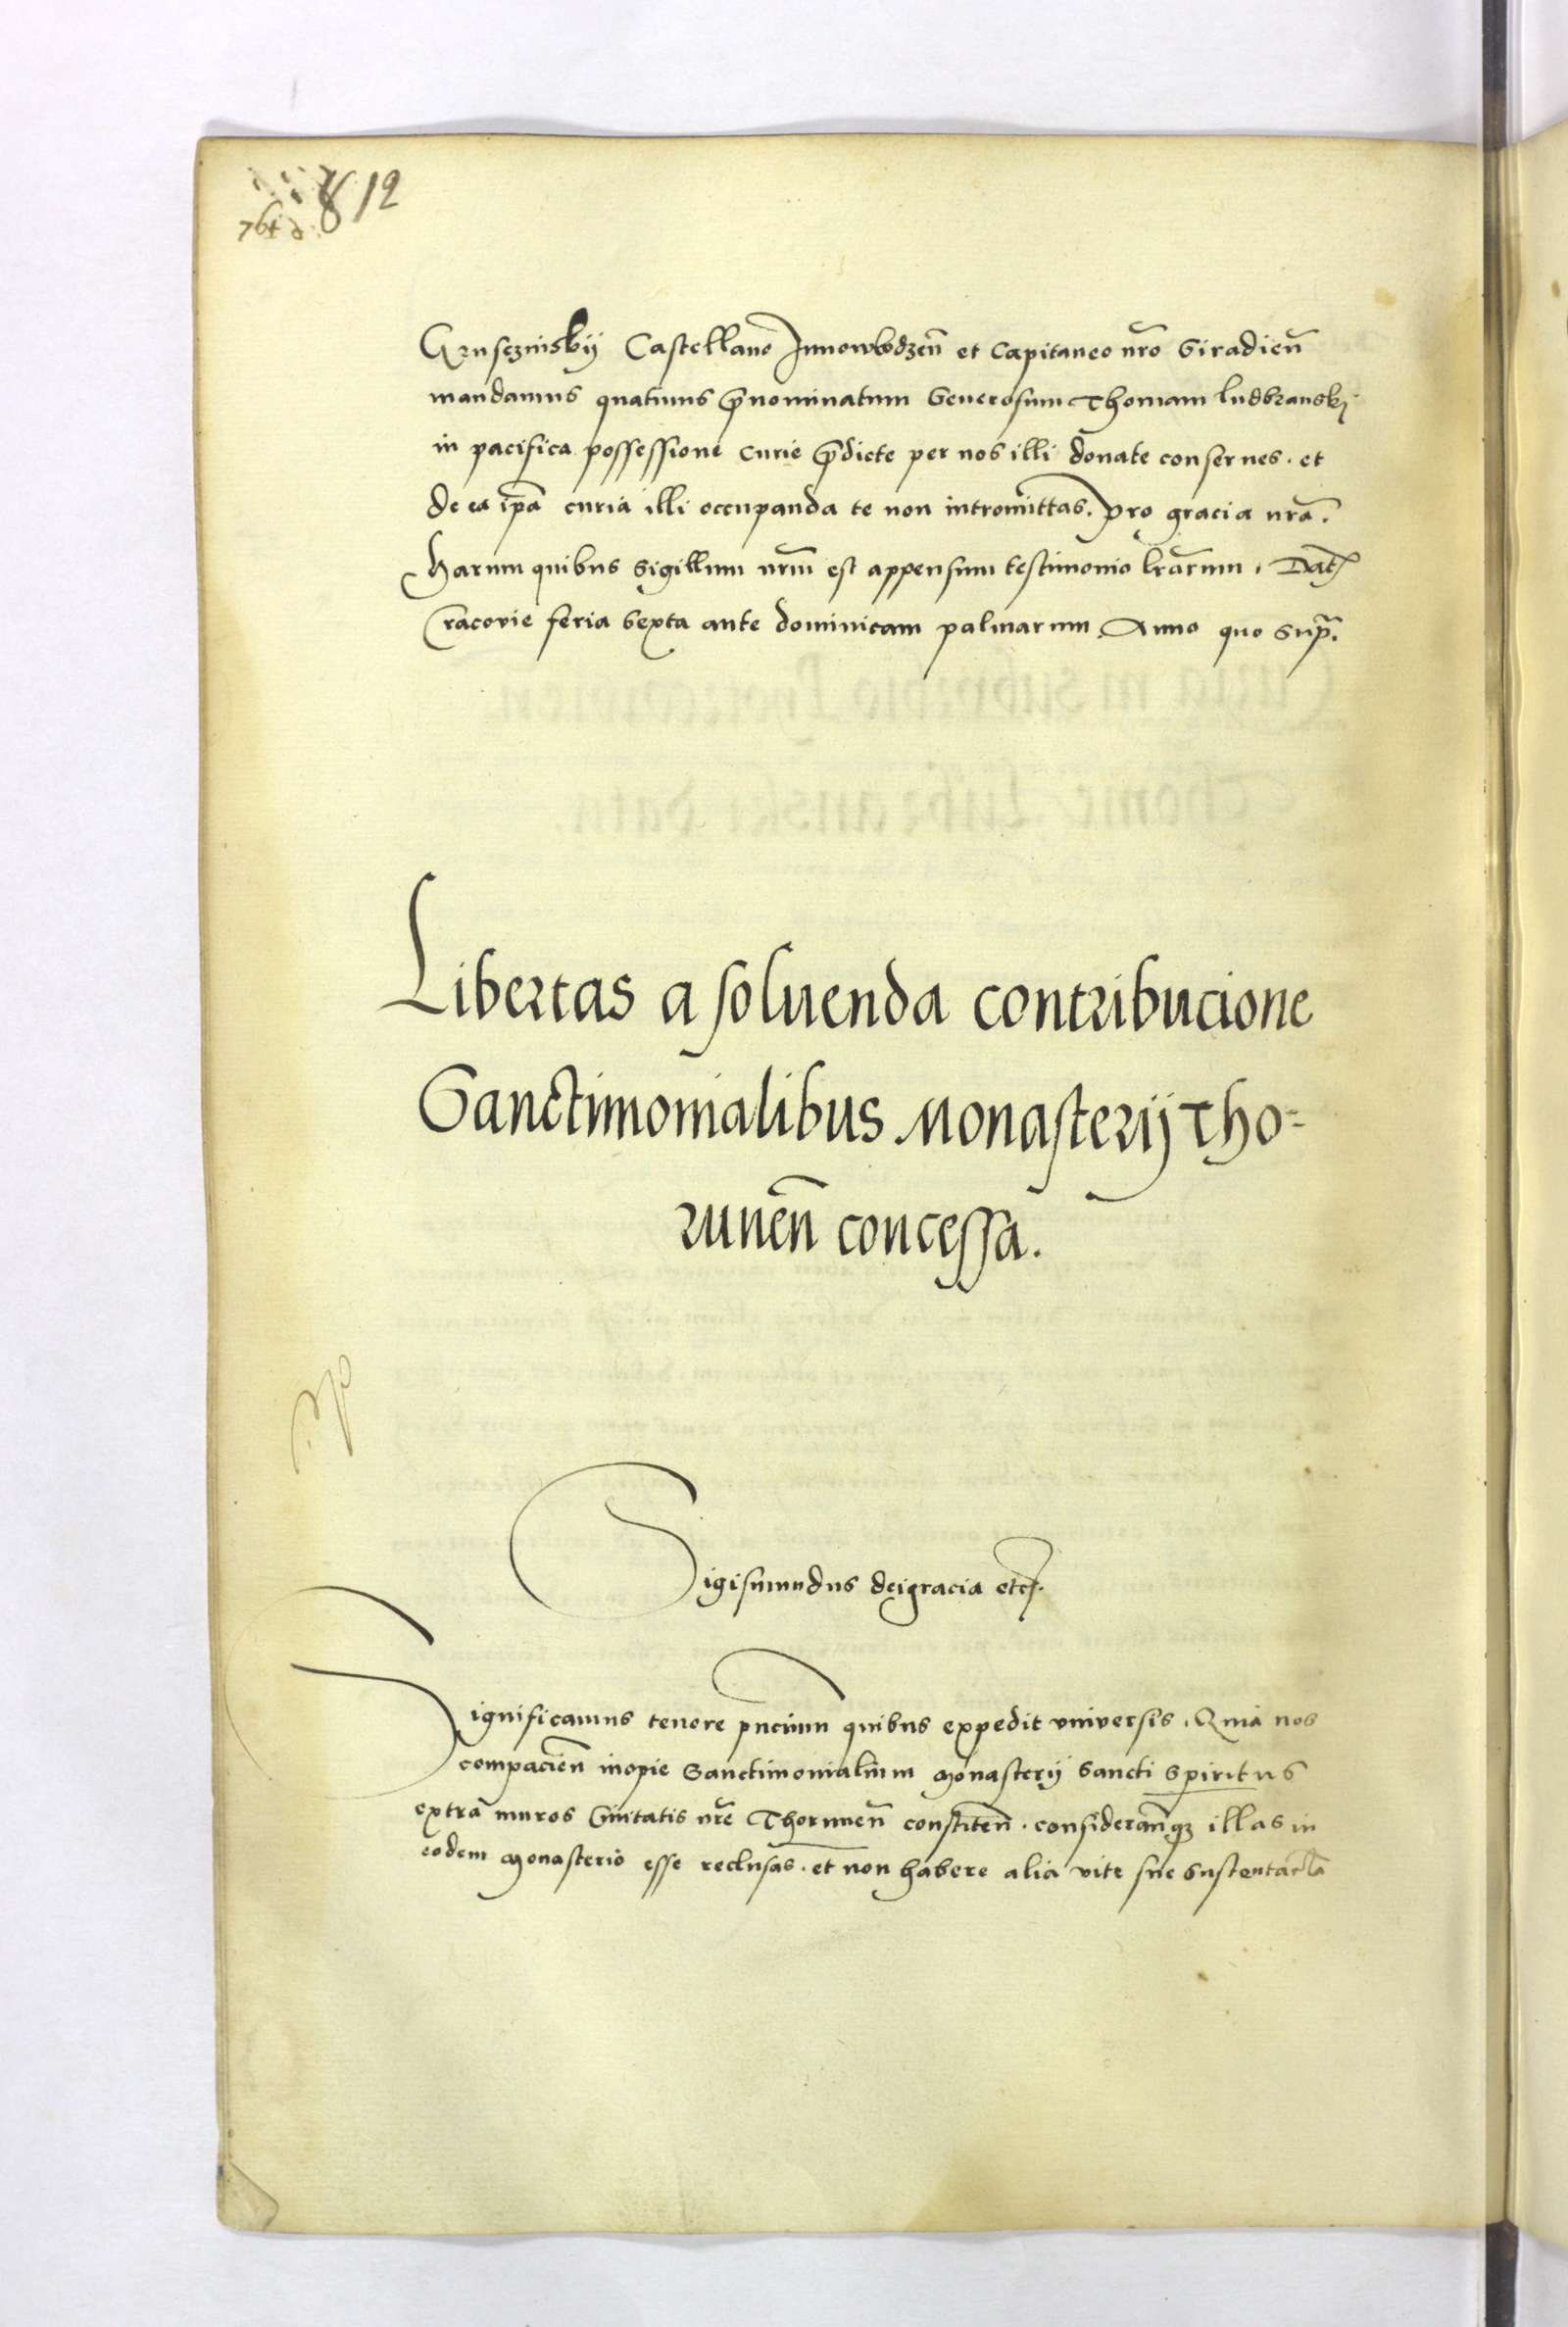 812
Castellano Innowlodzen̄ et Capitaneo nr̄o Siradien̄
mandamus quatinus p̄nominatum Generosum Thomam Lubranskj
in pacifica possessione curie p̄dicte per nos illi donate conserues. et
de ea ip̄a curia illi occupanda te non intromittas. pro gracia nr̄a.
Harum quibus sigillum nr̄m est appensum testimonio lr̄arum. Dat̄
Cracovie feria sexta ante dominicam palmarum Anno quo sup̄.
Libertas a soluenda contribucione
Sanctimonialibus Monasterij Tho=
runen̄ concessa.
Sigismundus dei gracia etc.
Significamus tenore pn̄cium quibus expedit vniversis. Quia nos
compacien̄ inopie Sanctimonialium Monasterij Sancti Spiritus
extra muros Ciuitatis nr̄e Thorunen̄ consisten̄. consideran̄q3 illas in
eodem Monasterio esse reclusas. et non habere alia vite sue sustentacl̄a